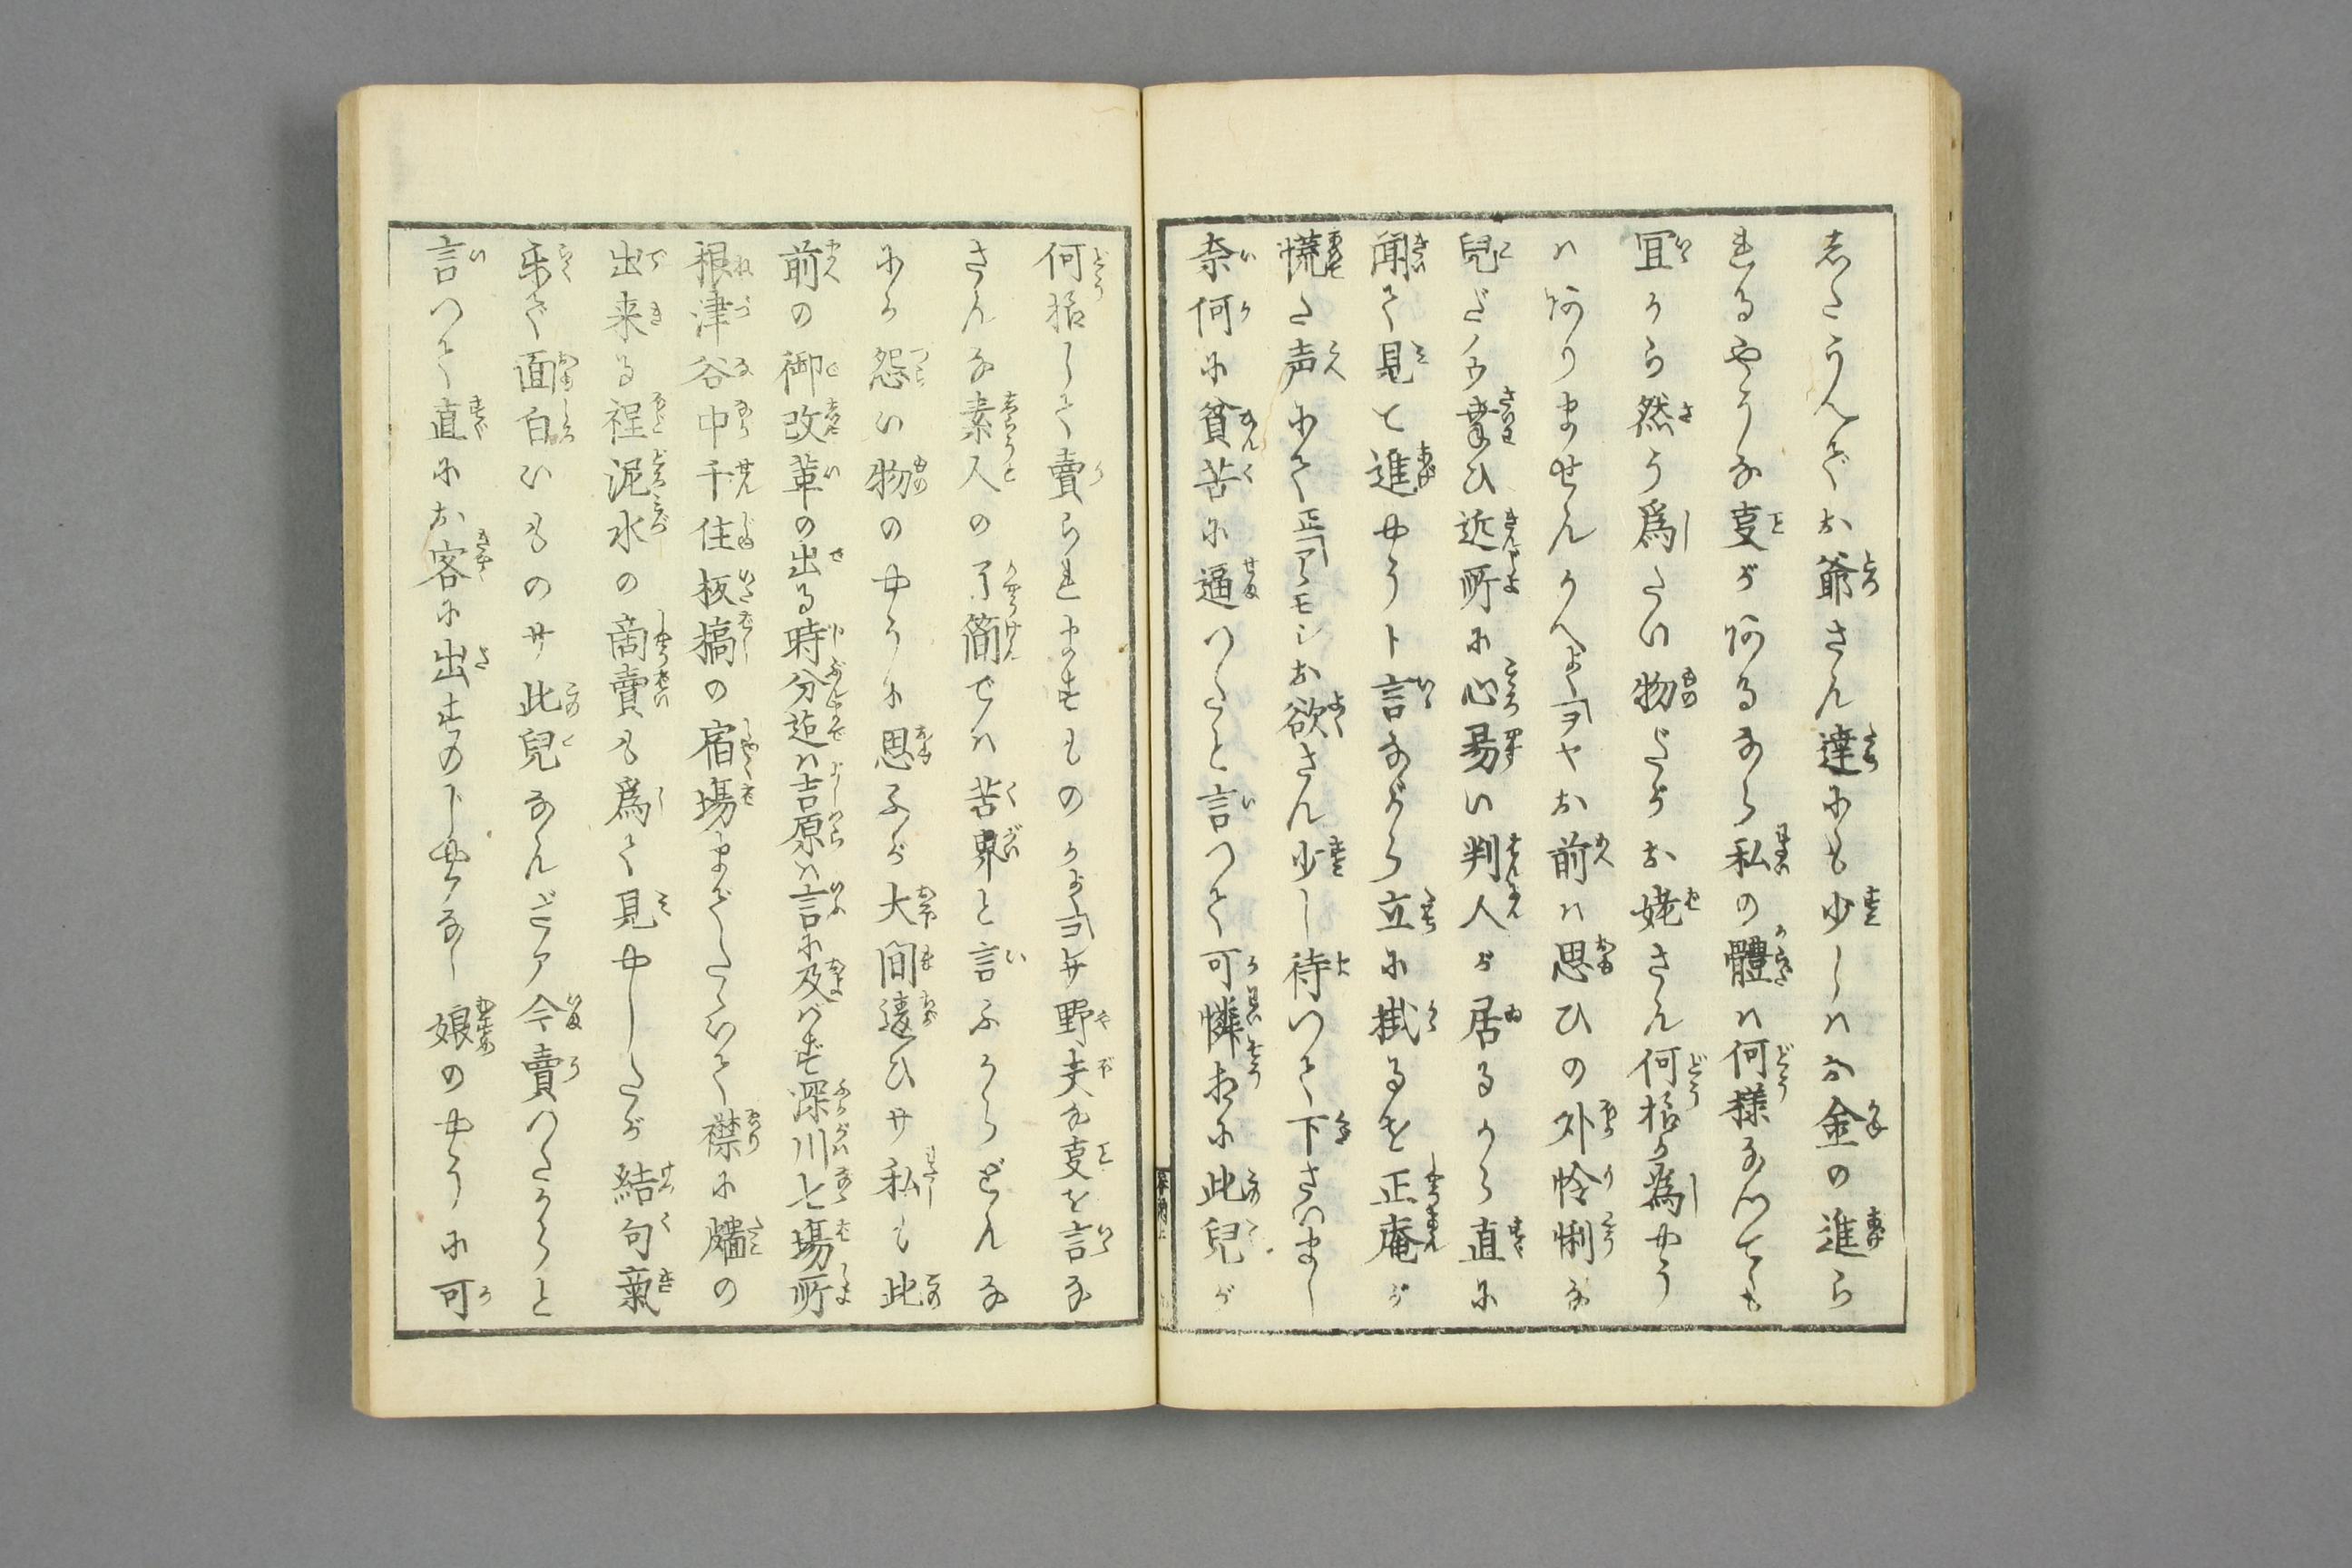 志たうんでお爺さん達にも少しハお金の進ら
れるやうな事が阿るなら私の體ハ何様なつても
宜から然う爲たい物だがお姥さん何拵か為やう
ハ阿りませんかへよく「ヲヤお前ハ思ひの外怜悧な
兒だノウ幸ひ近所に心易い判人が居るから直に
聞て見て進やうト言ながら立に掛るを正庵が
慌た声にて正「アヽモシお欲さん少し待つて下さいまし
奈何に貧苦に逼つたと言つて可憐相に此兒が
何拵して賣られますものかよく「ヨサ野夫な事を言な
さんな素人の了簡でハ苦界と言ふからどんな
にか怨い物のやうに思ふが大間違ひサ私も此
前の御改革の出る時分迄ハ吉原ハ言に及バず深川七場所
根津谷中千住板橋の宿場までたゝいて襟に垢の
出来る程泥水の商賣も爲て見やしたが結句氣
楽で面白いものサ此兒なんどア今賣つたからと
言つて直にお客に出すのじやアなし娘のやうに可